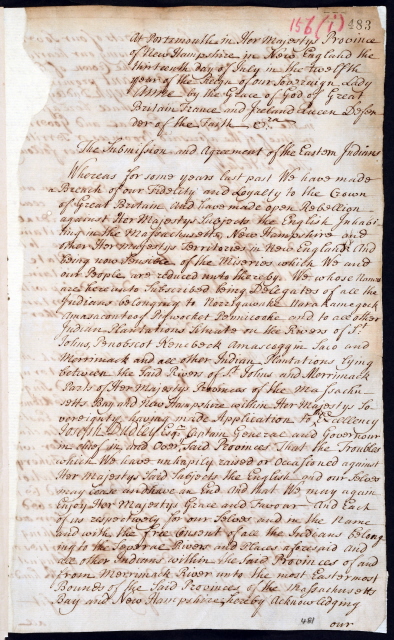 156 (i) 483
At Portsmouth in Her Majestys Province
of New Hampshire in New England the
thirteenth day of July in the twelfth
year of the Reign of our Soveraign Lady
Anne by the Grace of God of Great
Britain France and Ireland Queen Defen
der of the Faith &c
The Submission and Agreement of the Eastern Indians
Whereas for some years last past We have made
a Breach of our Fidelity and Loyalty to the Crown
of Great Britain and have made open Rebellion
against Her Majestys Subjects the English Inhabi
ting in the Massachusetts New Hampshire and
other Her Majestys Territories in New England And
being now sensible of the Miseries which We and
our People are reduced unto thereby We whose Names
are hereunto Subscribed being Delegates of all the
Indians belonging to Norrigwonke Narrakamegock
Amasacontoog Pigwocket Pennicooke and to all other
Indian Plantations Situate on the Rivers of St.
Johns Penobscot Kenebeck Amascoggin Saco and
Merrimack and all other Indian Plantations lying
between the said Rivers of St. Johns and Merrimack
Parts of Her Majestys Provinces of the Massachu
setts Bay and New Hampshire within Her Majestys So
vereignty having made Application to his Excellency
Joseph Dudley Esqr. Captain General and Governour
in chief in and over Said Provinces That the Troubles
which We have unhapily raised or Occasioned against
Her Majestys Said Subjects the English and our selves
may cease and have an End And that We may again
Enjoy Her Majestys Grace and Favour And Each
of us respectively for our selves and in the Name
and with the free consent of all the Indians belong
ing to the Several Rivers and places aforesaid and
all other Indians within the Said Provinces of and
from Merrimack River unto the most Easternmost
Bounds of the Said Provinces of the Massachusetts
Bay and New Hampshire hereby Acknowledging
481 our